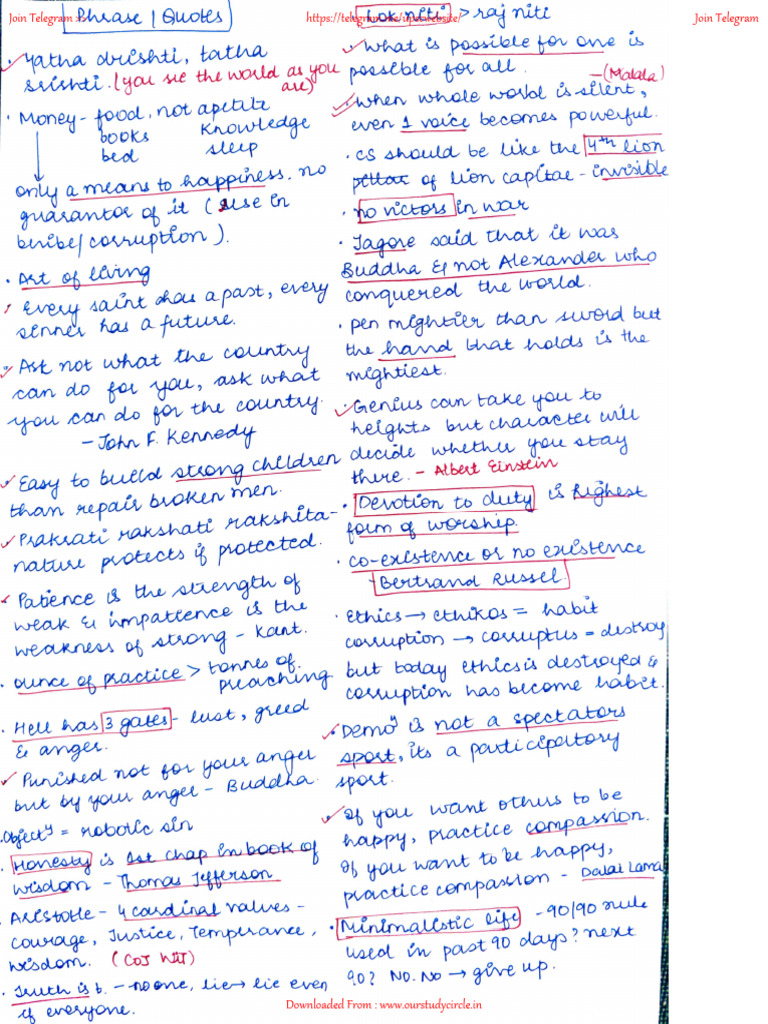 Join Telegram :-
https://telegram.me/upscwebsite/
Join Telegram
Phrase | Quotes
Yatha drishti, tatha
srishti. (you see the world as you
are)
Money - food, not apetite
books knowledge
bed sleep
only a means to happiness. no
guarantor of it (use in
bribe/corruption).
Art of living
Every saint has a past, every
sinner has a future.
Ask not what the country
can do for you, ask what
you can do for the country.
- John F. Kennedy
Easy to build strong children
than repair broken men.
Prakrati rakshati rakshita -
nature protects if protected.
Patience is the strength of
weak & impatience is the
weakness of strong - Kant.
ounce of practice > tonnes of
preaching
Hell has 3 gates - lust, greed
& anger.
Punished not for your anger
but by your anger - Buddha.
Objecty = robotic sin
Honesty is 1st chap in book of
wisdom - Thomas Jefferson
Aristotle - 4 cardinal values -
courage, Justice, Temperance,
wisdom. (CoJ WiT)
Truth is t. - no one, lie → lie even
if everyone.
Lok niti > raj niti
What is possible for one is
possible for all.
- (Malala)
when whole world is silent,
even 1 voice becomes powerful.
CS should be like the 4th lion
pillar of lion capital - invisible
no victors in war
Tagore said that it was
Buddha & not Alexander who
conquered the world.
pen mightier than sword but
the hand that holds is the
mightiest.
Genius can take you to
heights but character will
decide whether you stay
there. - Albert Einstein
Devotion to duty is highest
form of worship.
co-existence or no existence
- Bertrand Russel.
Ethics → ethikos = habit
corruption → corruptus = destroy
but today ethics is destroyed &
corruption has become habit.
Demoy is not a spectators
sport, its a participatory
sport.
If you want others to be
happy, practice compassion.
If you want to be happy,
practice compassion - Dalai Lama
Minimalistic life - 90/90 rule
used in past 90 days? next
90? No. No → give up.
Downloaded From : www.ourstudycircle.in